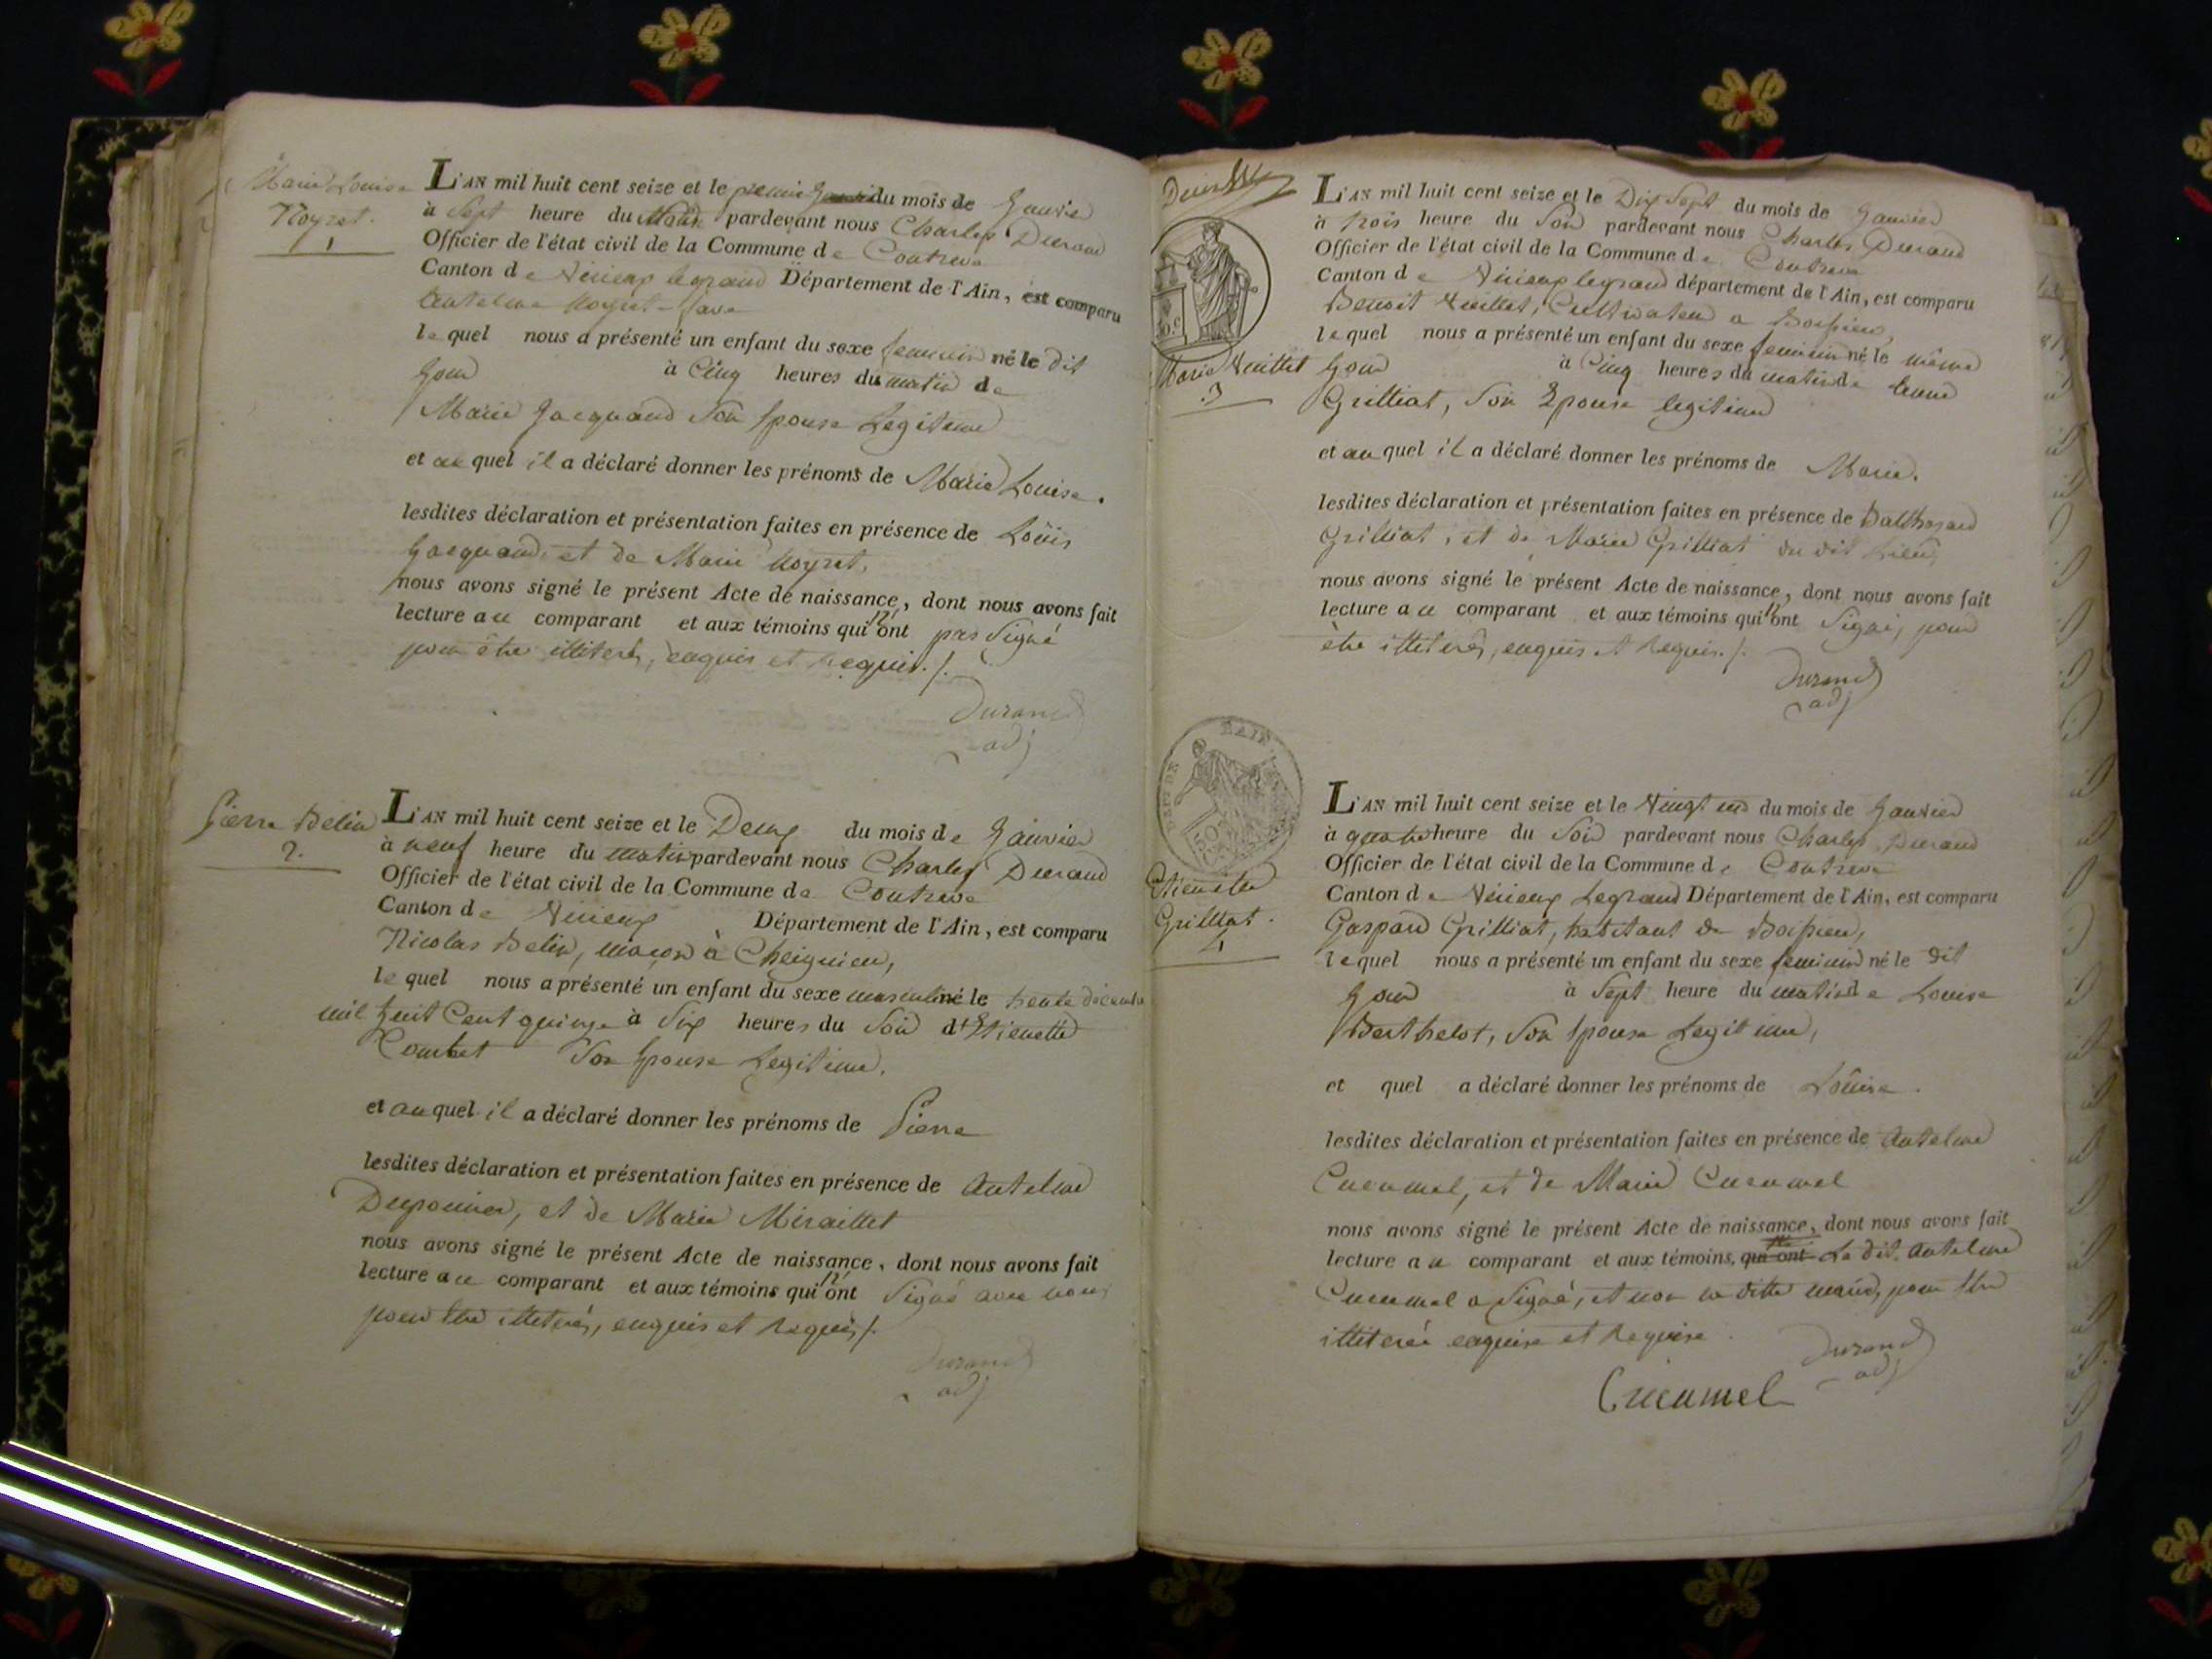 Marie Louise
Noyret.
1
L'AN mil huit cent seize et le premie du mois de Janvier
à Sept heure du pardevant nous Charles Durand
Officier de l'état civil de la Commune de Contrevoz
Canton de Virieux legrand Département de l'Ain, est comparu
Antelme Noyret
lequel nous a présenté un enfant du sexe feminin né le dit
Jour à Cinq heures du matin de
Marie Jacquand Son Epouse Legitime
et au quel il a déclaré donner les prénoms de Marie Louise.
lesdites déclaration et présentation faites en présence de Loüis
Jacquand, et de Marie Noyret,
nous avons signé le présent Acte de naissance, dont nous avons fait
lecture au comparant et aux témoins qui n'ont pas Signé
pour être illiterés, enquis et Requis./.
Durand
adj
Pierre Belin
2.
L'AN mil huit cent seize et le Deux du mois de Janvier
à neuf heure du matin pardevant nous Charles Durand
Officier de l'état civil de la Commune de Contrevoz
Canton de Virieux Département de l'Ain, est comparu
Nicolas Belin, maçon à Cheignieu,
lequel nous a présenté un enfant du sexe masculin né le trente décembre
mil huit Cent quinze à Six heures du Soir d'Etienette
Combet Son Epouse Legitime.
et au quel il a déclaré donner les prénoms de Pierre
lesdites déclaration et présentation faites en présence de Antelme
et de Marie Miraillet
nous avons signé le présent Acte de naissance, dont nous avons fait
lecture au comparant et aux témoins qui n'ont Signé avec nous
pour être illiterés, enquis et Requis,/.
Durand
adj
Marie Vuillet
3
L'AN mil huit cent seize et le Dix Sept du mois de Janvier
à trois heure du Soir pardevant nous Charles Durand
Officier de l'état civil de la Commune de Contrevoz
Canton de Virieux legrand département de l'Ain, est comparu
Benoit Vuillet, Cultivateur a Boissieu,
lequel nous a présenté un enfant du sexe feminin né le même
Jour à Cinq heures du matin de
Grilliat, Son Epouse legitime
et au quel il a déclaré donner les prénoms de Marie.
lesdites déclaration et présentation faites en présence de Balthazard
Grilliat, et de Marie Grilliat du dit Lieu,
nous avons signé le présent Acte de naissance, dont nous avons fait
lecture au comparant et aux témoins qui n'ont Signé, pour
être illiterés, enquis et Requis./.
Durand
adj
Etienette
Grilliat.
4
L'AN mil huit cent seize et le Vingt un du mois de Janvier
à quatre heure du Soir pardevant nous Charles Durand
Officier de l'état civil de la Commune de Contrevoz
Canton de Virieux Legrand Département de l'Ain, est comparu
Gaspard Grilliat, habitant de Boissieu,
lequel nous a présenté un enfant du sexe feminin né le dit
Jour à Sept heure du matin de Louise
Berthelot, Son Epouse Legitime,
et quel a déclaré donner les prénoms de Loüise.
lesdites déclaration et présentation faites en présence de Antelme
Cucumel, et de Marie Cucumel
nous avons signé le présent Acte de naissance, dont nous avons fait
lecture au comparant et aux témoins, qui ont Le dit Antelme
Cucumel a Signé, et non la ditte marie, pour être
illiterée enquise et Requise.
Durand
adj
Cucumel